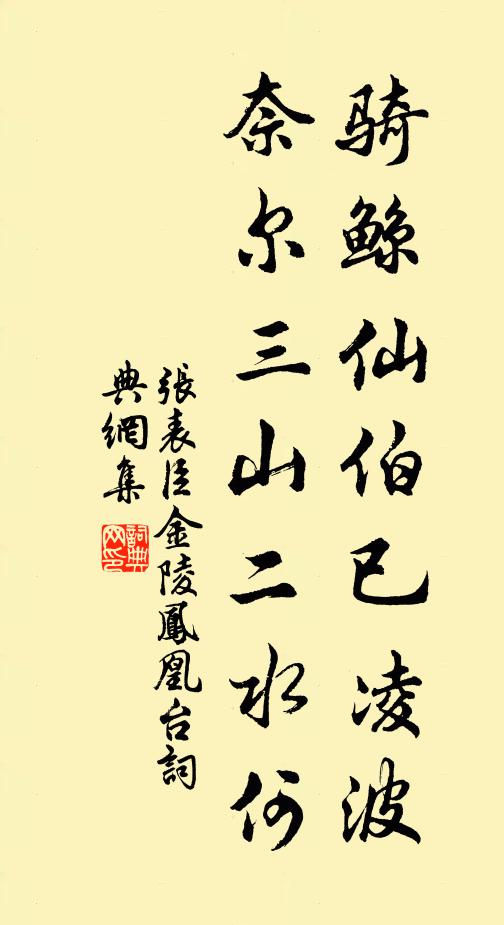 骑鲸仙伯已凌波
奈尔三山二水何
張表臣金陵鳳凰台詞
典網集
詞典
网印